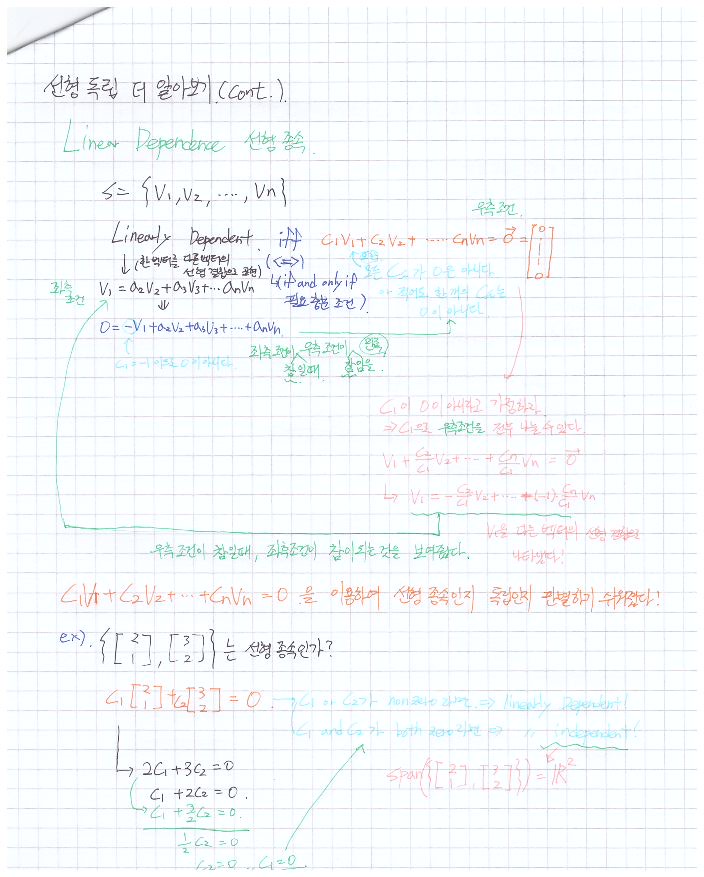 선형 독립 더 알아보기.(Cont.).
Linear Dependence 선형 종속.
S = {V₁, V₂, ...., Vn}
우측조건.
Linearly Dependent. iff C₁V₁ + C₂V₂ + ...... CnVn = 0⃗ = [0 | | 0]
↓(한 벡터를 다른 벡터의 선형 결합으로 표현) (<=>)
모든 C 가 0은 아니다.
아 적어도 한 개의 C 는 0이 아니다.
좌측조건 V₁ = a₂V₂ + a₃V₃ ... anVn
↳(if and only if 필요충분조건).
⇓
0 = -V₁ + a₂V₂ + a₃V₃ + .... + anVn
C₁ = -1 이므로 0이 아니다.
좌측조건이 참일때 우측조건이 참임을.
C₁이 0이 아니라고 가정하자.
⇒ C₁으로 우측조건을 전부 나눌 수 있다.
V₁ + C₂/C₁ V₂ + ... + Cn/C₁ Vn = 0⃗
↳ V₁ = -C₂/C₁ V₂ + ... + (-1) Cn/C₁ Vn
V₁을 다른 벡터의 선형 결합으로
나타냈다!
우측조건이 참일때, 좌측조건이 참이 되는것을 보여줬다.
C₁V₁ + C₂V₂ + ... + CnVn = 0 을 이용하여 선형 종속인지 독립인지 판별하기 쉬워졌다!
ex). {[2 1], [3 2]} 는 선형 종속인가?
C₁[2 1] + C₂[3 2] = 0. → C₁ or C₂가 nonzero 라면 ⇒ linearly Dependent!
C₁ and C₂ 가 both zero 라면 ⇒ 〃 independent!
span({[2 1], [3 2]}) = ℝ²
↳ 2C₁ + 3C₂ = 0
C₁ + 2C₂ = 0.
C₁ + 3/2 C₂ = 0.
1/2 C₂ = 0
C₂ = 0, C₁ = 0